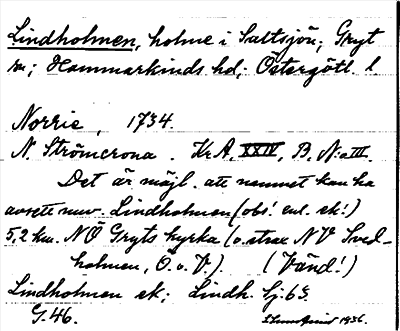 Lindholmen, holme i Saltsjön, Gryt
sn; Hammarkinds hd; Östergötl. l.
Norrie, 1734.
N. Strömcrona. Kr.A. XXIV, B, N:o III.
Det är möjl. att namnet kan ha
avsett nuv. Lindholmen (obs! enl. ek!)
5,2 km. NÖ Gryts kyrka (o. strax NV Sved-
holmen, Ö. o V.). (Vänd!)
Lindholmen ek; Lindh. Sj. 63.
G. 46. 1936.